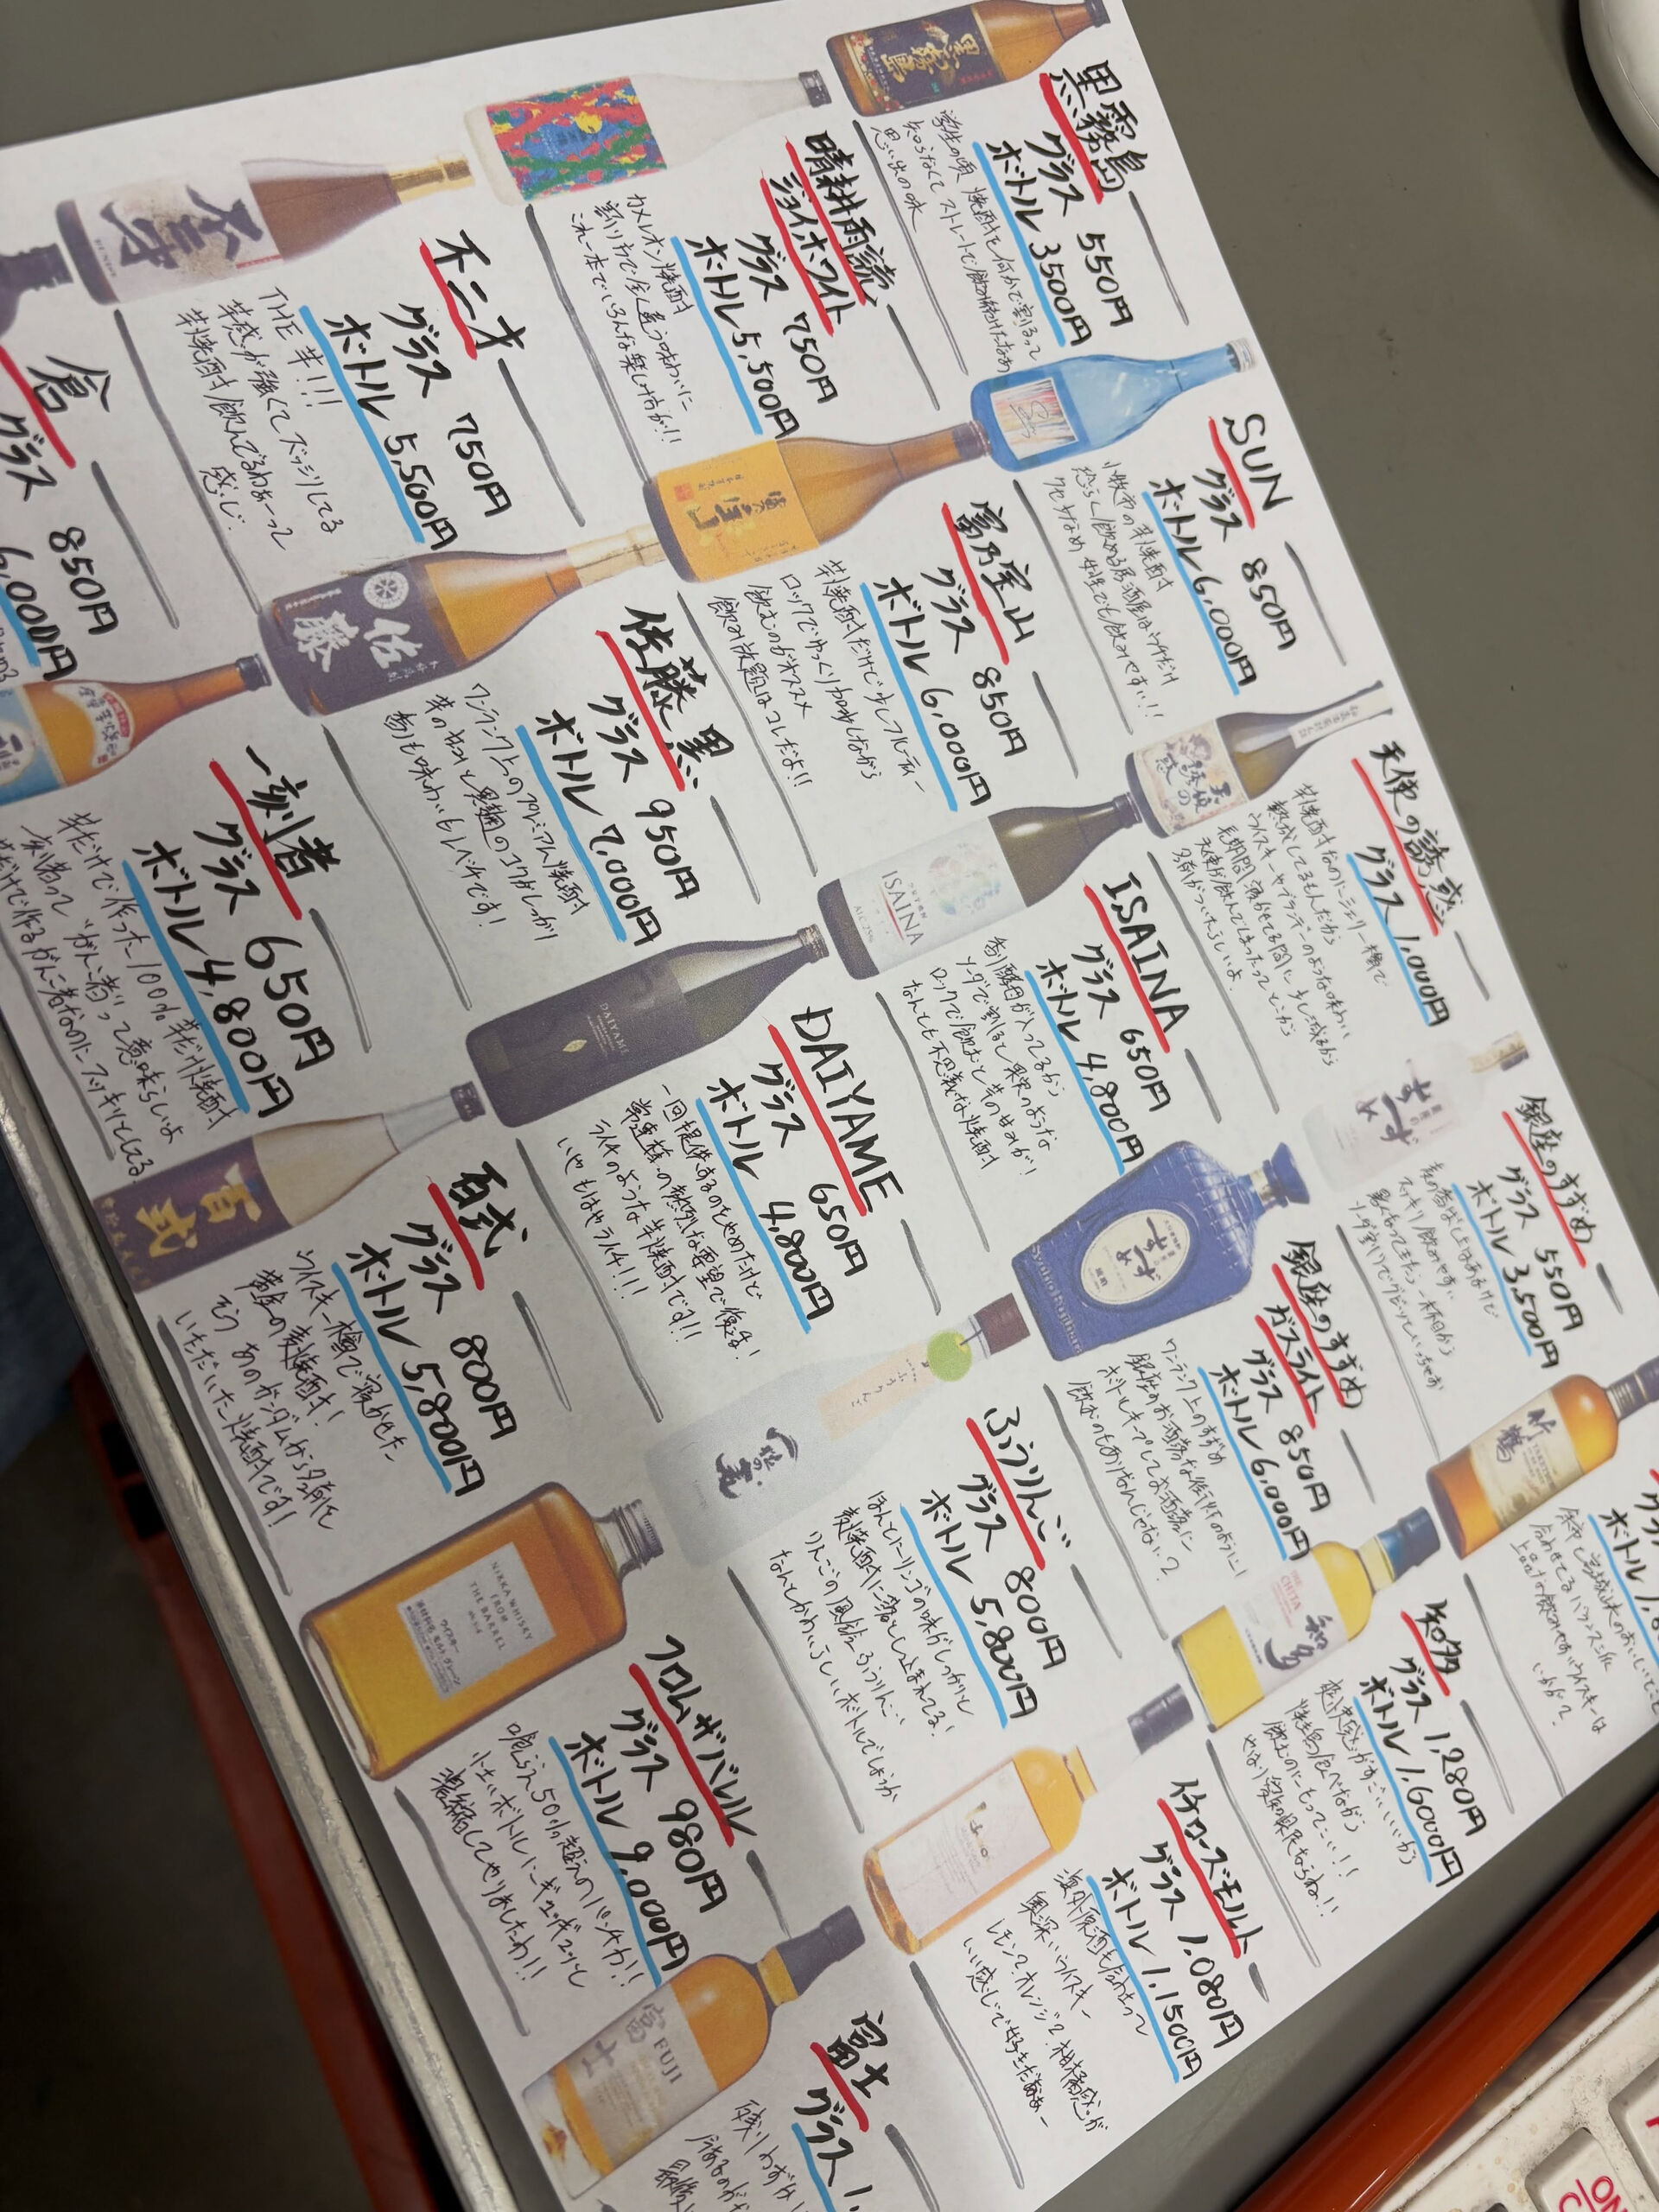 黒霧島
グラス 550円
ボトル 3500円
学生の頃 焼酎を何かで割るって
知らなくて ストレートで
思い出の味
晴耕雨読
ジョイホワイト
グラス 750円
ボトル 5,500円
カメレオン焼酎
割り方で全く違う味わいに
これ一本でいろんな楽しみ方が!!
不二才
グラス 750円
ボトル 5,500円
THE 芋!!!
芋感が強くてズッシリしてる
芋焼酎飲んでるわぁーって
感じ
倉
グラス 850円
6,000円
SUN
グラス 850円
ボトル 6,000円
小牧市の芋焼酎
恐らく飲める居酒屋はウチだけ
クセ少なめ 女性でも飲みやすい!!
富乃宝山
グラス 850円
ボトル 6,000円
芋焼酎だけど少しフルーティー
ロックでゆっくり
飲むのがオススメ
飲み放題はコレだよ!!
佐藤 黒
グラス 950円
ボトル 7,000円
ワンランク上のプレミアム焼酎
芋の甘みと黒麹のコクがしっかり
香りも味わいもレベチです!
一刻者
グラス 650円
ボトル 4,800円
芋だけで作った100%芋だけ焼酎
一刻者って "がんこ者"って意味らしいよ
芋だけで作るがんこ者なのにスッキリしてる
天使の誘惑
グラス 1,000円
芋焼酎なのにシェリー樽で
熟成してるもんだから
ウイスキーやブランデーのような味わい
長期間 寝かせてる間に少し減るから
天使が飲んでしまったってとこから
名前がついたらしいよ
ISAINA
ISAINA
グラス 650円
ボトル 4,800円
香り酵母が入ってるから
ソーダで割ると果実のような
ロックで飲むと芋の甘みが!
なんとも不思議な焼酎
DAIYAME
DAIYAME
グラス 650円
ボトル 4,800円
一回提供するのをやめたけど
常連様の熱烈な要望で復活!
ライチのような芋焼酎です!!
いや もはやライチ!!!
百式
グラス 800円
ボトル 5,800円
ウイスキー樽で寝かせた
黄金の麦焼酎!
そう あのガンダムから名前を
いただいた焼酎です!
銀座のすずめ
グラス 550円
ボトル 3,500円
麦の香ばしさはあるけど
スッキリ飲みやすい
銀座のすずめ
ガスライト
グラス 850円
ボトル 6,000円
ワンランク上のすずめ
銀座のお洒落な街灯のように!
ボトルキープしてお洒落に
飲むのもありなんじゃない?
ふうりんご
グラス 800円
ボトル 5,800円
ほんとにリンゴの味がしっかりと
麦焼酎に落とし込まれてる!
りんごの風鈴 ふうりんご
なんとかわいらしいボトルでしょうか
NIKKA WHISKY
FROM
THE BARREL
フロムザバレル
グラス 980円
ボトル 9,000円
喰らえ50%超えのパンチ力!!
小さいボトルにギュッギュッと
凝縮してやりましたわ!!
竹鶴
余市と宮城峡のおいしいとこを
知多
グラス 1,280円
ボトル 1,6000円
爽快感がすごいいいから
焼き鳥食べながら
飲むのにもってこい!!
イチローズモルト
グラス 1,080円
ボトル 1,1500円
海外原酒も合わさって
奥深いウイスキー
レモン?オレンジ? 柑橘感が
いい感じで好きだなぁー
富士
FUJI
富士
グラス 1,
残りわずか